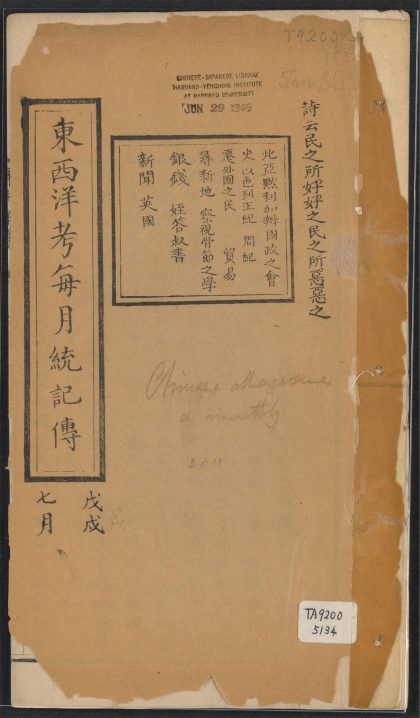 TA9200
CHINESE-JAPANESE LIBRARY
HARVARD-YENCHING INSTITUTE
AT HARVARD UNIVERSITY
JUN 29 1949
詩云民之所好好之民之所惡惡之
北亞默利加辦國政之會
史 以色列王紀 周紀
遷外國之民 貿易
尋新地 察視骨節之學
銀錢 姪答叔書
新聞 英國
東西洋考每月統記傳
戊戌
七月
Chinese Magazine
a monthly
2011
TA9200
5134